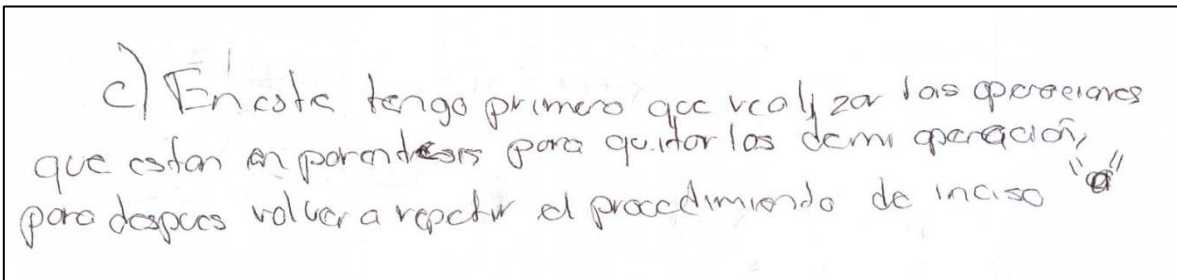 c) En esta tengo primero que realizar las operaciones
que estan en parentesis para quitar los de mi operación,
para despues volver a repetir el procedimiento de inciso "a"